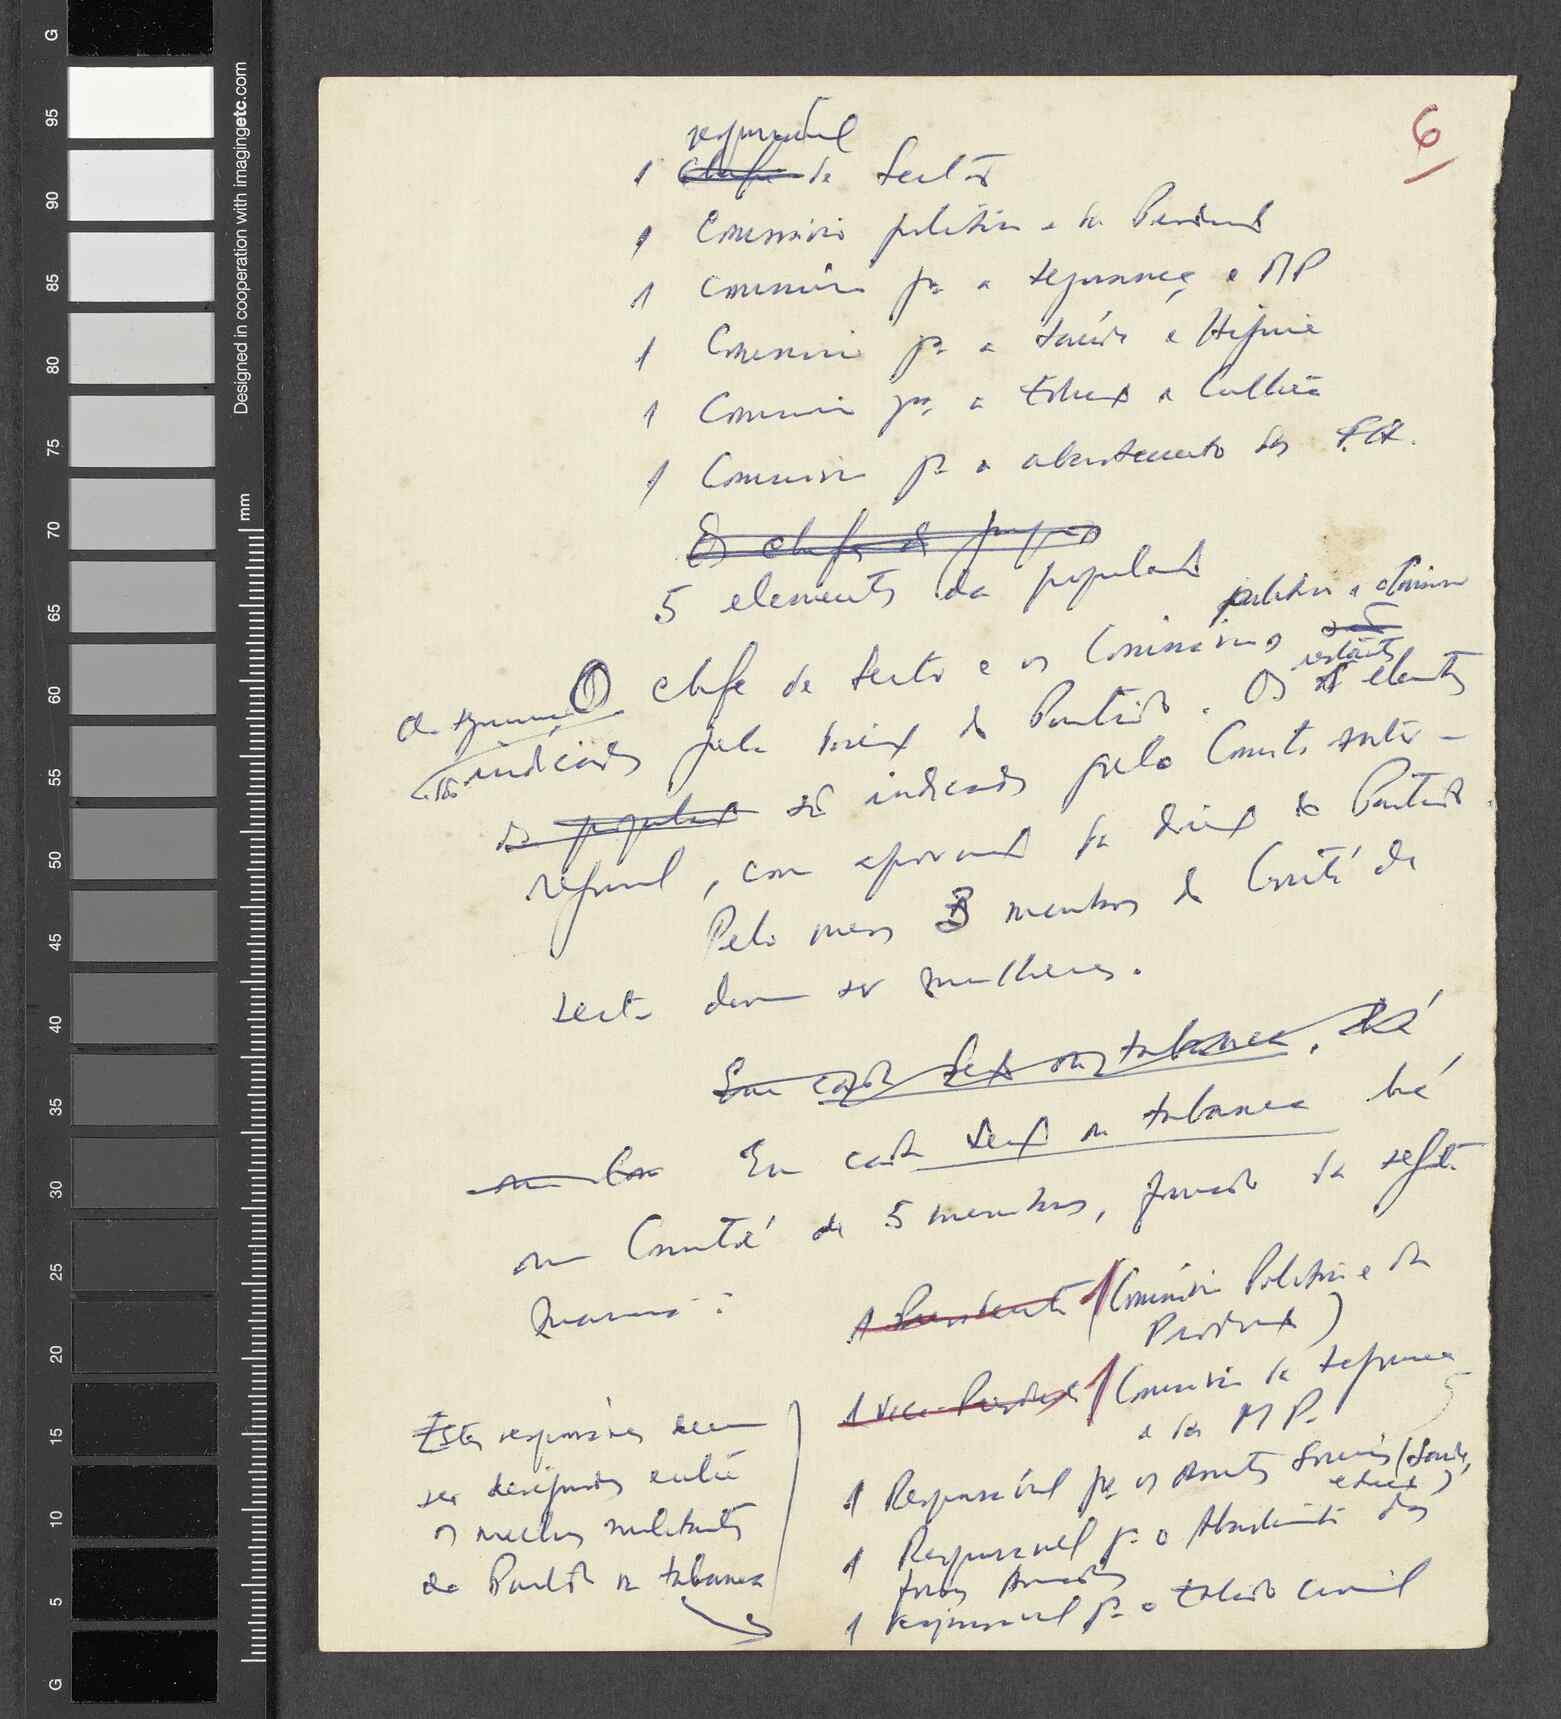 6
responsável
1 Chefe de Sector
1 Comissário político e da Produç
1 Comissário pa a segurança e MP
1 Comissário pa a Saúde e Higiene
1 Comissário pa a Educ e Cultura
1 Comissário pa o abastecimento das F.A.
Os chefes de
5 elementos da populaç
político e
O chefe de Sector e os Comissários são
restantes
da segurança
são indicados pela direcç do Partido. Os elementos
da populaç são indicados pelo Comité inter-
regional, com aprovaç da direcç do Partido.
Pelo menos 3 membros do Comité de
sector devem ser mulheres.
Em cada Secç ou tabanca, há
um Com Em cada Secç ou tabanca há
um Comité de 5 membros, formado da segte
maneira:
1 Presidente (Comissário Político e da
Produç)
1 Vice-Presidente (Comissário da Segurança
e da MP.
1 Responsável pa os Assuntos Sociais (Saúde,
educç)
1 Responsável pa o Abastecimento das
Forças Armadas
1 responsável pa o Estado Civil
Estes responsáveis devem
ser designados entre
os melhores militantes
do Partido na tabanca
Designed in cooperation with imagingetc.com
mm
G
95
90
85
80
75
70
65
60
55
50
45
40
35
30
25
20
15
10
5
G